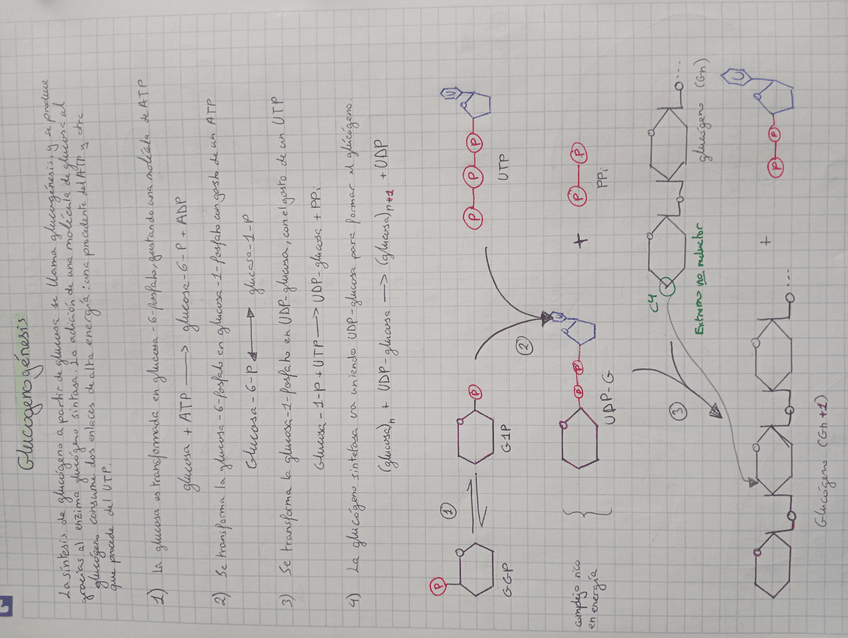 Glucogenogénesis
La síntesis de glucógeno a partir de glucosa se llama glucogénesis, y se produce
gracias al enzima glucógeno sintasa. La adición de una molécula de glucosa al
glucógeno consume dos enlaces de alta energía: una procedente del ATP y otra
que procede del UTP.
1) La glucosa es transformada en glucosa-6-fosfato, gastando una molécula de ATP
glucosa + ATP → glucosa-6-P + ADP
2) Se transforma la glucosa-6-fosfato en glucosa-1-fosfato con gasto de un ATP
Glucosa-6-P ↔ glucosa-1-P
3) Se transforma la glucosa-1-fosfato en UDP-glucosa, con el gasto de un UTP
Glucosa-1-P + UTP → UDP-glucosa + PPi
4) La glucógeno sintetasa va uniendo UDP-glucosa para formar el glucógeno.
(glucosa)n + UDP-glucosa → (glucosa)n+1 + UDP
P
G6P
①
P
G1P
P P P U
UTP
②
complejo rico
en energía
P P U
UDP-G
+
P P
PPi
③
C4
Extremo no reductor
O O O O...
glucógeno (Gn)
O O O O O O...
Glucógeno (Gn+1)
+
P P U